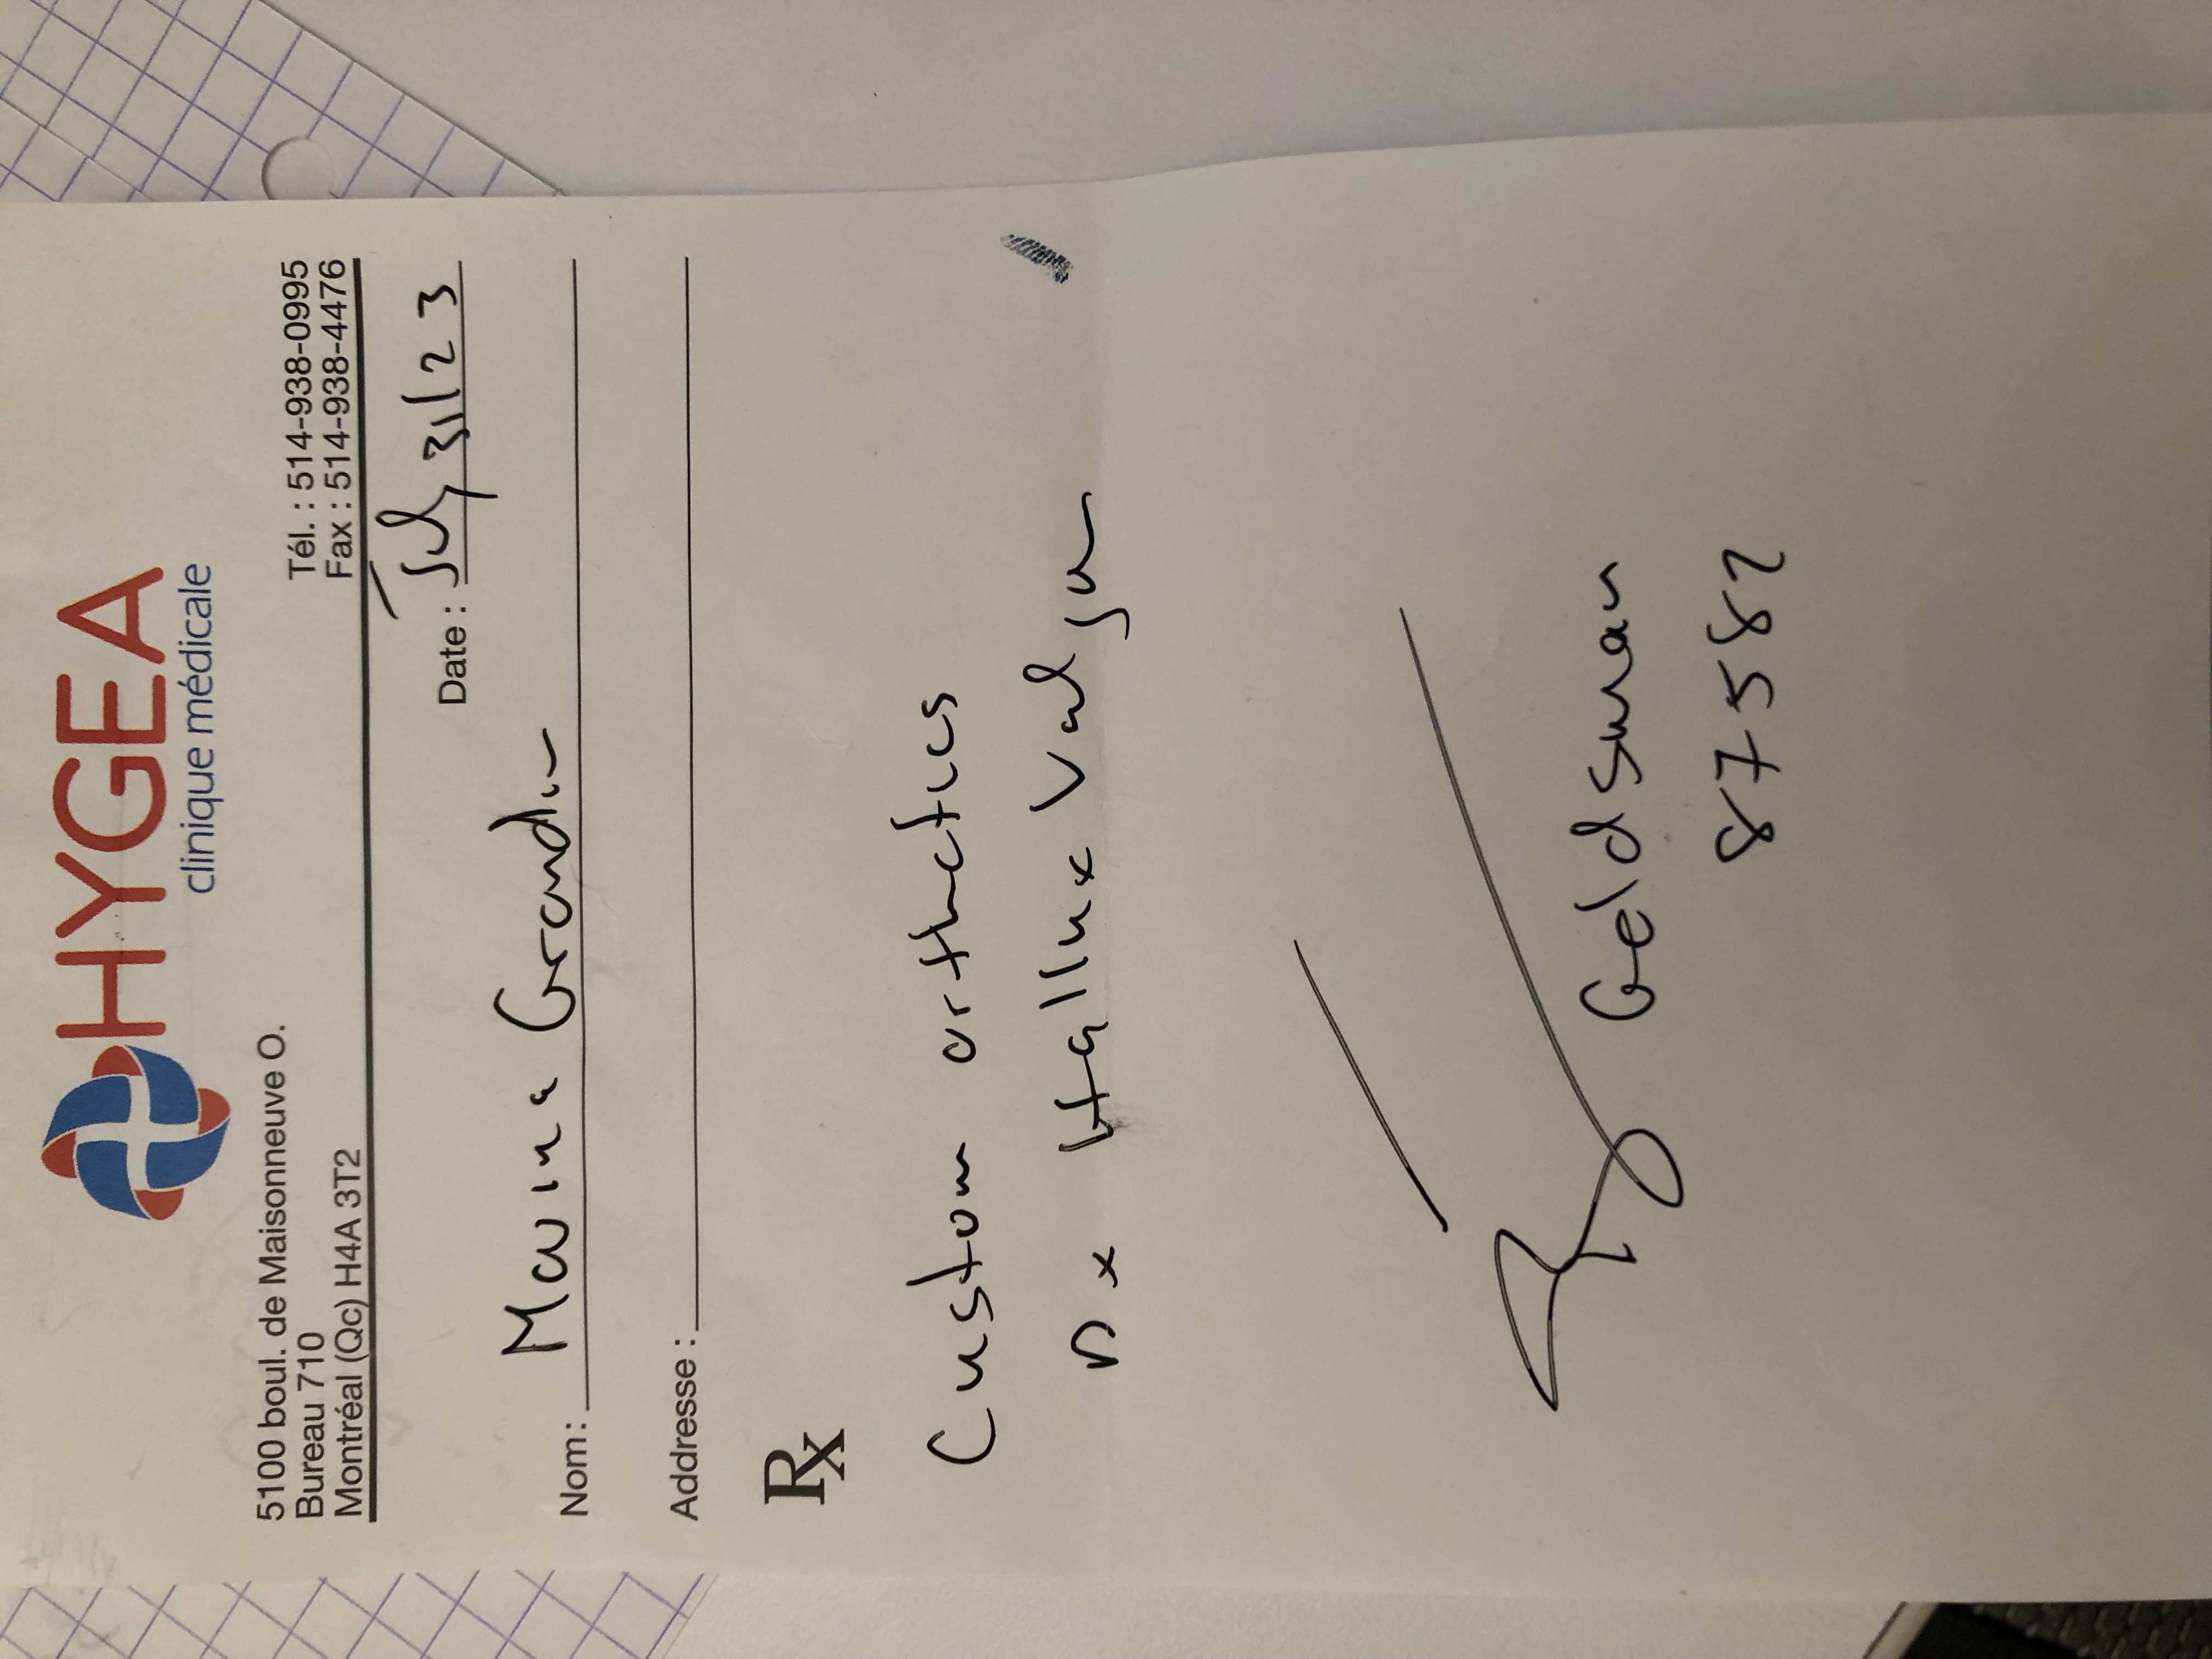 HYGEA
clinique médicale
5100 boul. de Maisonneuve O.
Bureau 710
Montréal (Qc) H4A 3T2
Tél. : 514-938-0995
Fax : 514-938-4476
Date : July 31/23
Nom: Marina Grandin
Addresse :
Rx
Custom orthotics
Dx Hallux Valgus
Geldsman
87582